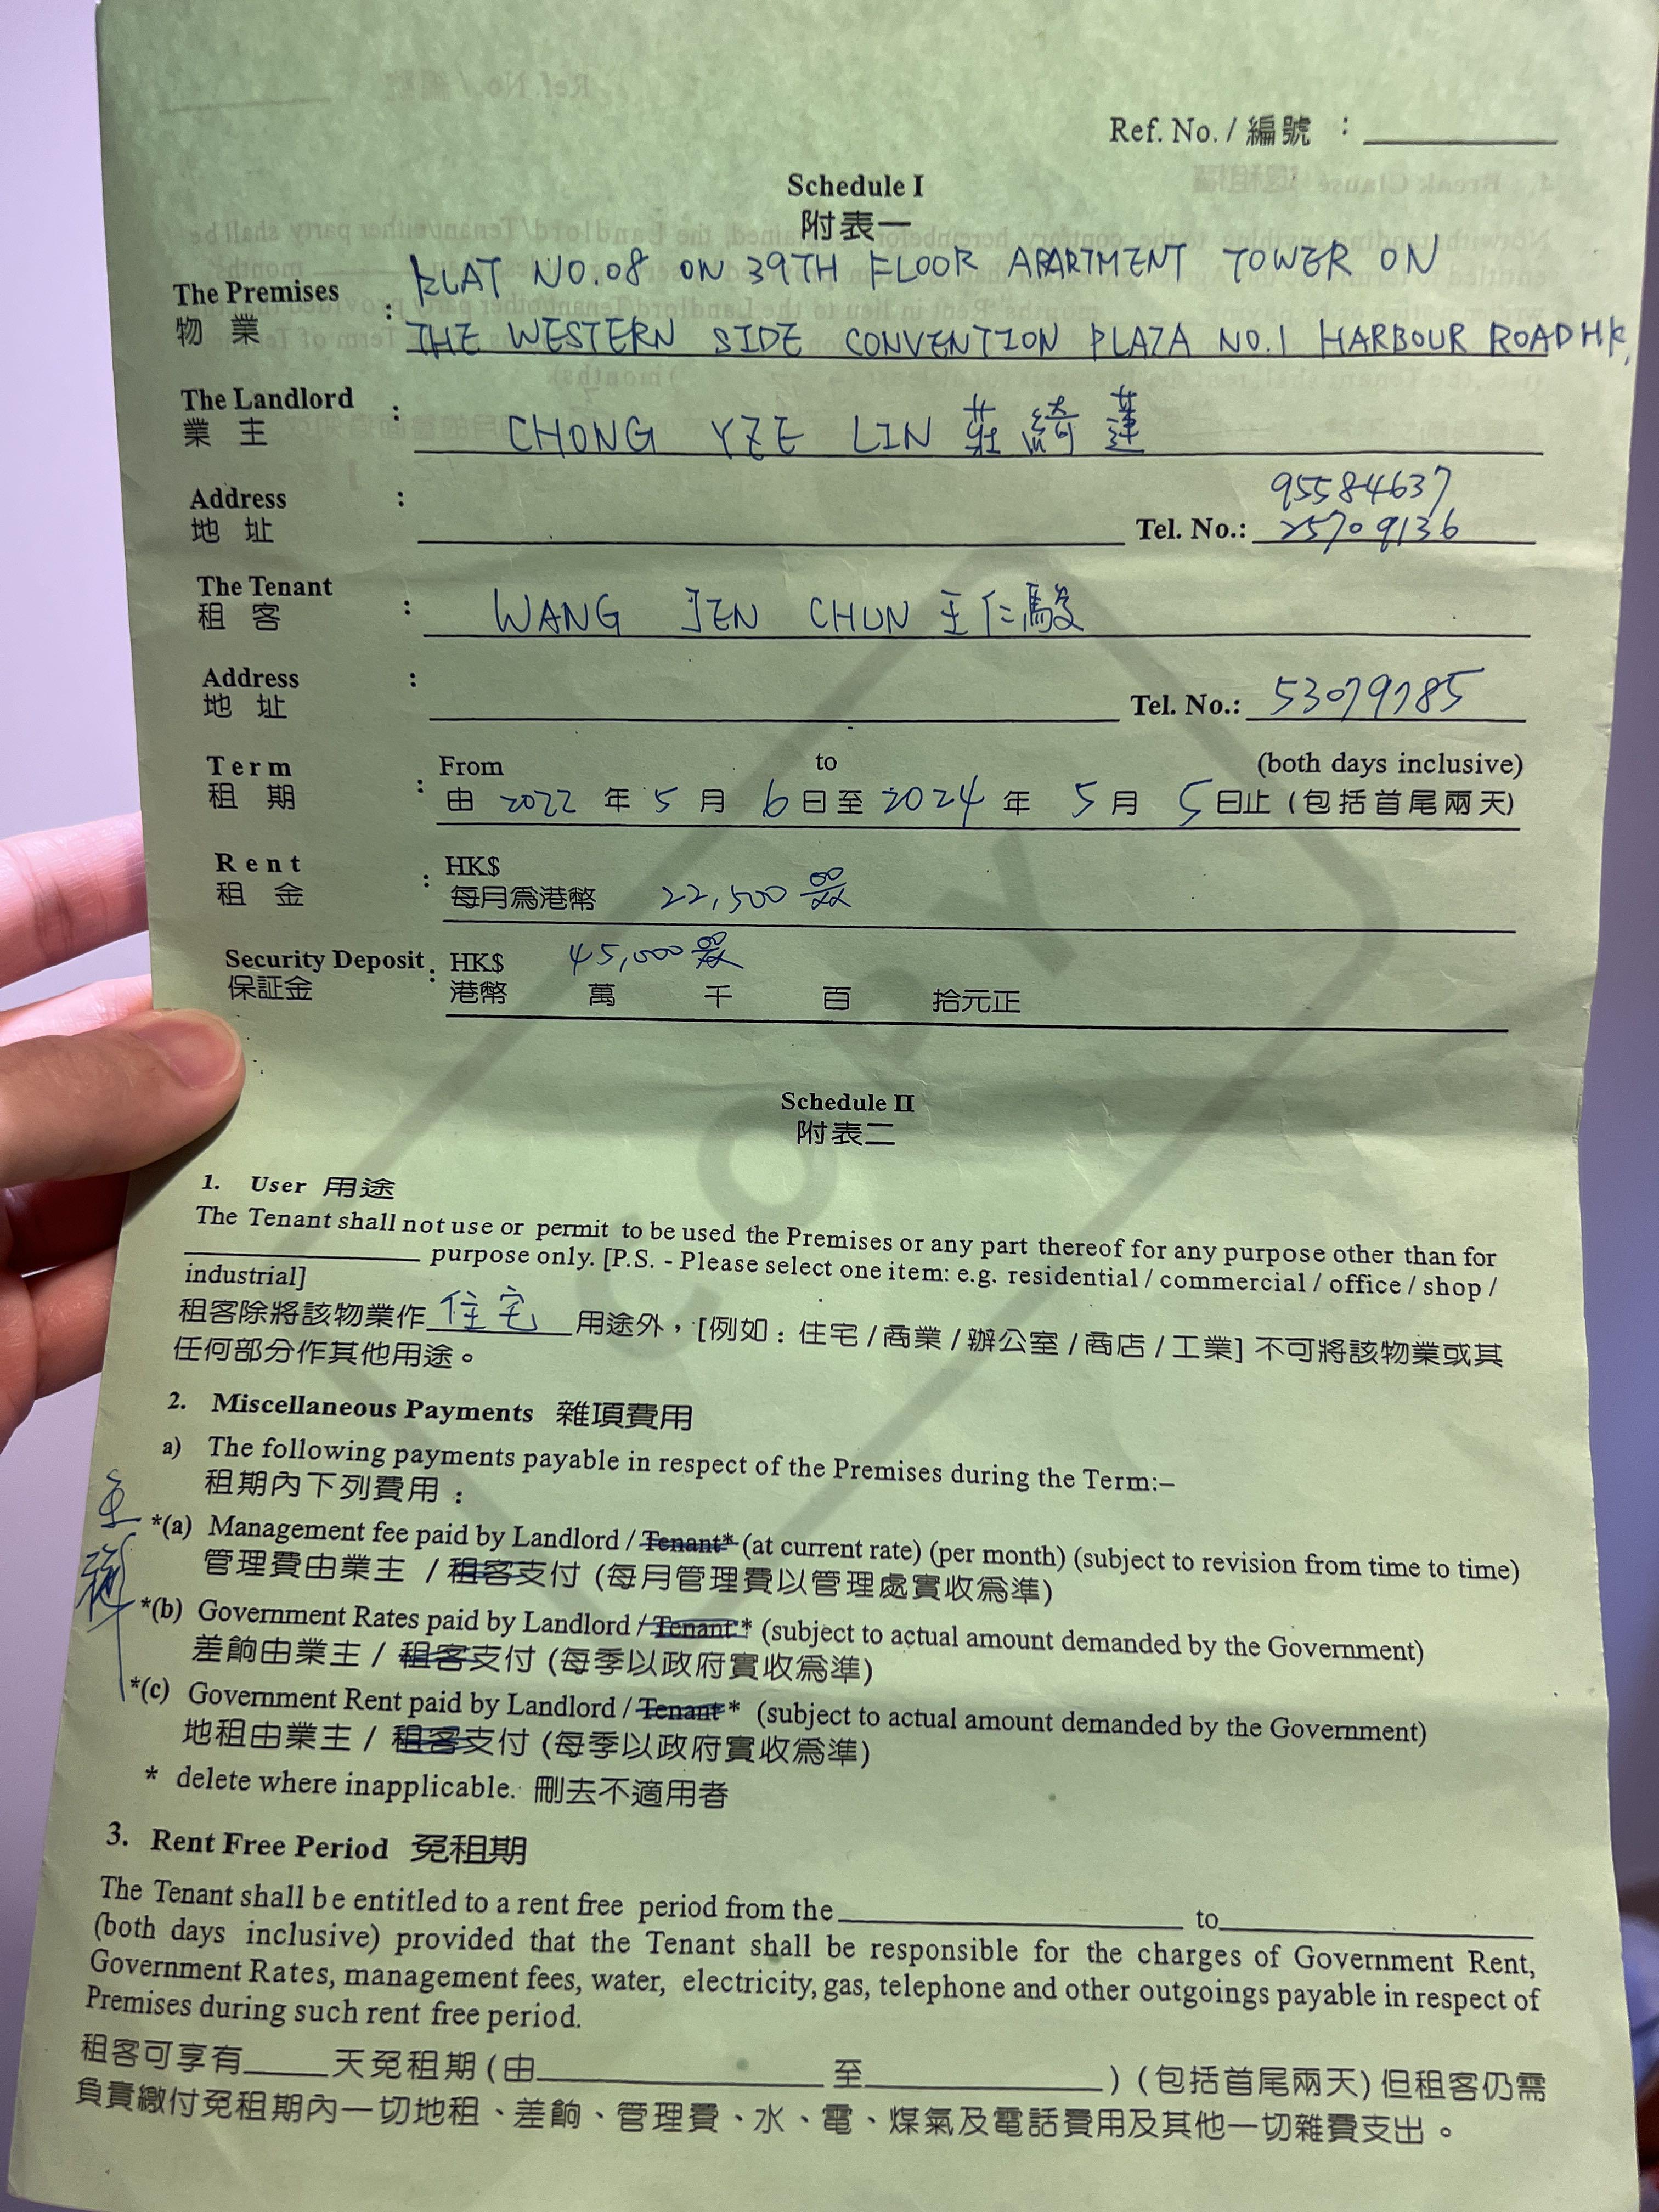 Ref. No. / 編號 :
Schedule I
附表一
The Premises : FLAT NO.08 ON 39TH FLOOR APARTMENT TOWER ON
物業 THE WESTERN SIDE CONVENTION PLAZA NO.1 HARBOUR ROAD HK.
The Landlord : CHONG YZE LIN 莊綺蓮
業主
95584637
Address :
地址 Tel. No.: 25709136
The Tenant : WANG JEN CHUN 王仁駿
租客
Address :
地址 Tel. No.: 53079785
Term : From to (both days inclusive)
租期 由 2022 年 5 月 6 日至 2024 年 5 月 5 日止 (包括首尾兩天)
Rent : HK$
租金 每月為港幣 22,500
Security Deposit : HK$ 45,000
保証金 港幣 萬 千 百 拾元正
COPY
Schedule II
附表二
1. User 用途
The Tenant shall not use or permit to be used the Premises or any part thereof for any purpose other than for
purpose only. [P.S. - Please select one item: e.g. residential / commercial / office / shop /
industrial]
租客除將該物業作 住宅 用途外，[例如：住宅 / 商業 / 辦公室 / 商店 / 工業] 不可將該物業或其
任何部分作其他用途。
2. Miscellaneous Payments 雜項費用
a) The following payments payable in respect of the Premises during the Term:–
租期內下列費用：
*(a) Management fee paid by Landlord / Tenant* (at current rate) (per month) (subject to revision from time to time)
管理費由業主 / 租客支付 (每月管理費以管理處實收為準)
*(b) Government Rates paid by Landlord / Tenant* (subject to actual amount demanded by the Government)
差餉由業主 / 租客支付 (每季以政府實收為準)
*(c) Government Rent paid by Landlord / Tenant* (subject to actual amount demanded by the Government)
地租由業主 / 租客支付 (每季以政府實收為準)
* delete where inapplicable. 刪去不適用者
3. Rent Free Period 免租期
The Tenant shall be entitled to a rent free period from the to
(both days inclusive) provided that the Tenant shall be responsible for the charges of Government Rent,
Government Rates, management fees, water, electricity, gas, telephone and other outgoings payable in respect of
Premises during such rent free period.
租客可享有 天免租期 (由 至 ) (包括首尾兩天) 但租客仍需
負責繳付免租期內一切地租、差餉、管理費、水、電、煤氣及電話費用及其他一切雜費支出。